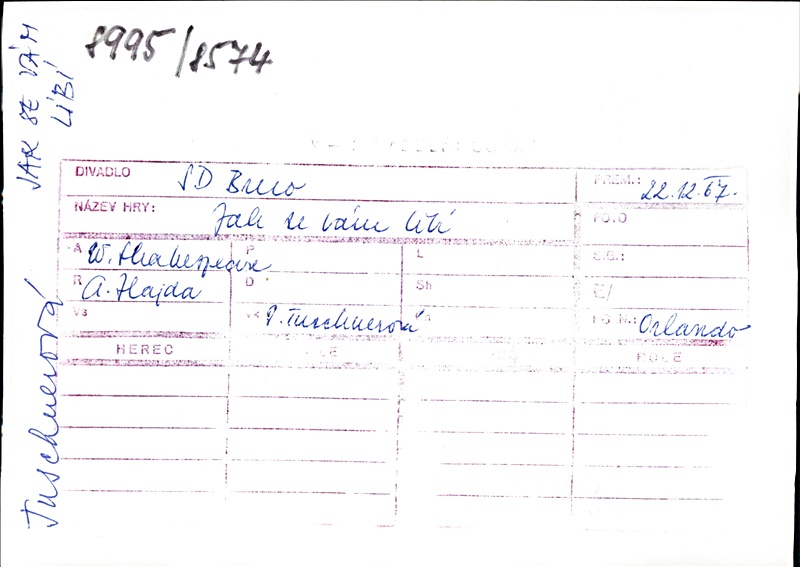 8995/8574
JAK SE VÁM
LÍBÍ
Tuschnerová
DIVADLO SD Brno PREM.: 22.12.67.
NÁZEV HRY: Jak se vám líbí FOTO
A W. Shakespeare P L
R A. Hajda D Sh
Vs Vk P. Tuschnerová Orlando
HEREC ROLE